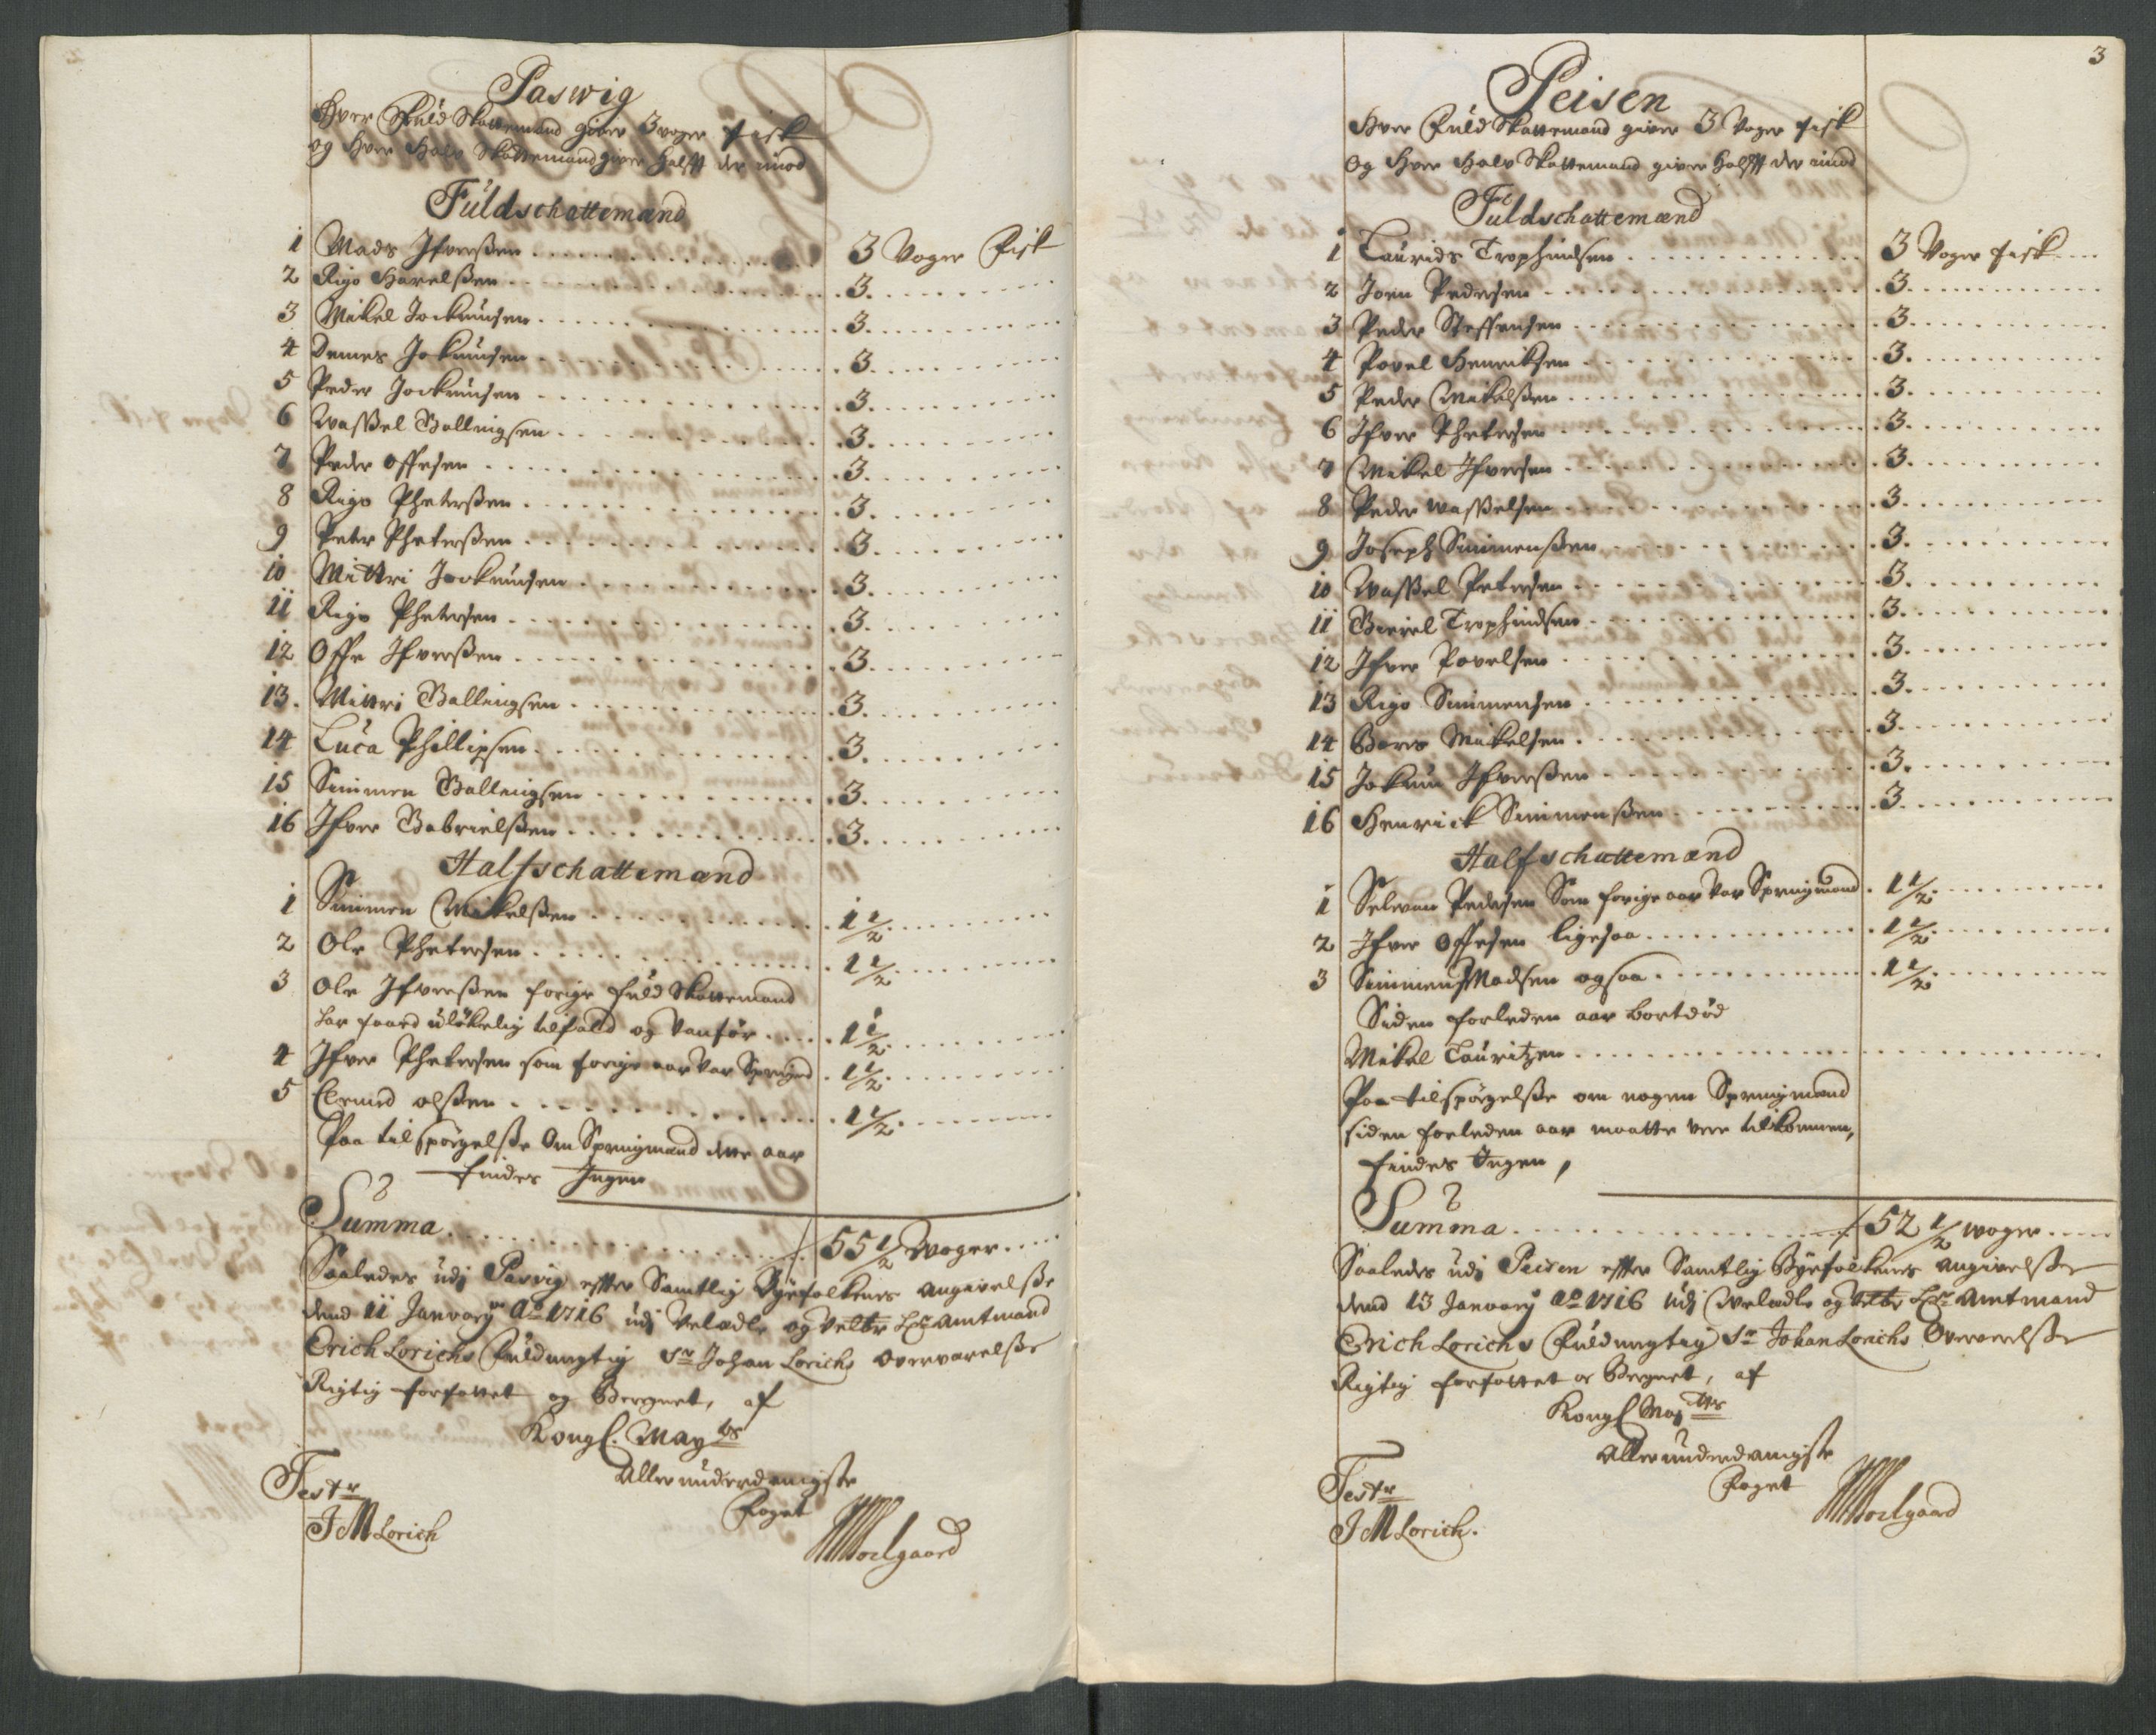 Paswig
Hver Fuld Skattemand giver 3 voger fisk
og Hver Halv Skattemand giver halfft der imod
Fuldschattemænd
1 Mads Ifverßen 3 Voger Fisk
2 Rigo Havelßen 3
3 Mikel Jocknundsen 3
4 Demes Jocknundsen 3
5 Peder Jocknundsen 3
6 Waßel Gallingsen 3
7 Peder Offesen 3
8 Rigo Pheterßen 3
9 Peter Pheterßen 3
10 Mittri Jocknundsen 3
11 Rigo Phetersen 3
12 Offe Ifverßen 3
13. Mittri Gallingsen 3
14 Luca Phillipsen 3
15 Simmen Gallingsen 3
16 Ifver Gabrielßen 3
Halfschattemænd
1 Simmen Mikelßen 1 1/2
2 Ole Phetersen 1 1/2
3 Ole Ifverßen forige fuld Skattemand
har faaed ulökelig tilfald og Vanför 1 1/2
4 Ifver Phetersen som forige aar Var 1 1/2
5 olßen 1 1/2
Paa tilspörgelße Om Sprengmænd dette aar
findes Ingen
Summa 55 1/2 Woger
Saaledes udj Pasvig effter Samtlig Byefolkenes angivelße
dend 11 January Ao 1716 udj Velædle og Velbr Hr Amtmand
Erich Lorichs Fuldmegtig Sr Johan Lorichs Overværelße
Rigtig forfattet og Beregnet, af
Kongl. Mayts
Allerunderdanigste
Foget
Testr
JMLorich
Soelgaard
3
Peisen
Hver Fuld Skattemand giver 3 Voger fisk
Og Hver Halv Skattemand giver Halfft der imod
Fuldschattemænd
1 Laurids Trophindsen 3 Voger fisk
2 Joen Pedersen 3
3 Peder Steffensen 3
4 Povel Henriksen 3
5 Peder Mikelßen 3
6 Ifver Phetersen 3
7 Mikel Ifversen 3
8 Peder Waßelsen 3
9 Joseph Simmenßen 3
10 Waßel Petersen 3
11 Trophindsen 3
12 Ifver Povelsen 3
13 Rigo Simmensen 3
14 Boris Mikelsen 3
15 Jokum Ifverßen 3
16 Henrick Simmenßen 3
Halfschattemænd
1 Selvan Pedersen Som forige aar Var Sprengmand 1 1/2
2 Ifver Offesen ligesaa 1 1/2
3 Simmen Madsen ogsaa 1 1/2
Siden forleden aar bortdöd
Mikel Lauritzen
Paa tilspörgelße om nogen Sprengmænd
siden forleden aar maatte vere tilkommen,
findes Ingen,
Summa 52 1/2 woger
Saaledes udj Peisen effter Samtlig Byefolkenes angivelße
dend 13 January Ao 1716 udj Velædle og Velbr Hr Amtmand
Erich Lorichs Fuldmegtig Sr Johan Lorichs Overværelße
Rigtig forfattet og Beregnet, af
Kongl. Mayts
Allerunderdanigste
Foget
Testr
JMLorich.
Soelgaard